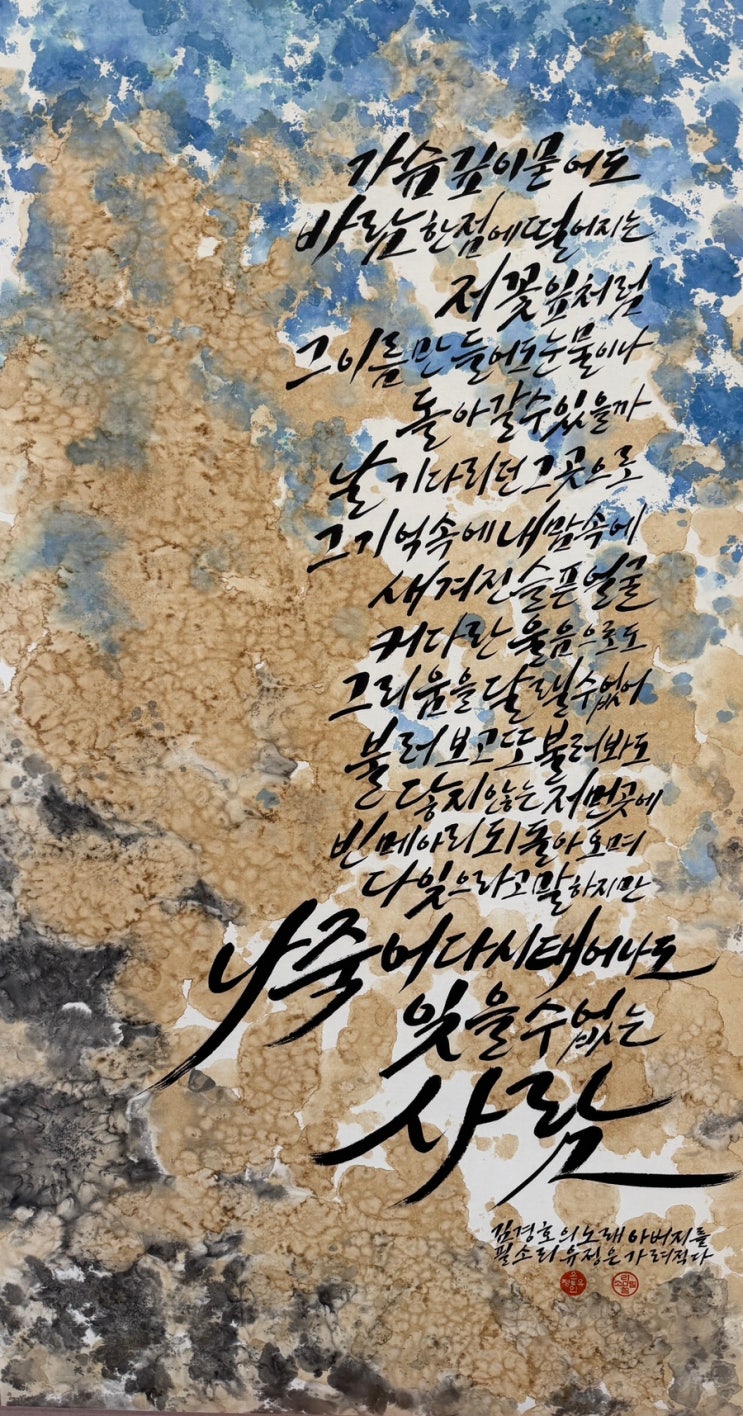 가슴 깊이 묻어도
바람 한 점에 떨어지는
저 꽃잎처럼
그 이름만 들어도 눈물이 나
돌아갈 수 있을까
날 기다리던 그곳으로
그 기억 속에 내 맘속에
새겨진 슬픈 얼굴
커다란 울음으로도
그리움을 달랠 수 없어
불러보고 또 불러봐도
닿지 않는 저 먼 곳에
빈 메아리 되돌아오며
다 잊으라고 말하지만
나 죽어 다시 태어나도
잊을 수 없는
사람
김경호의 노래 아버지를
필소리 유정은 가려적다